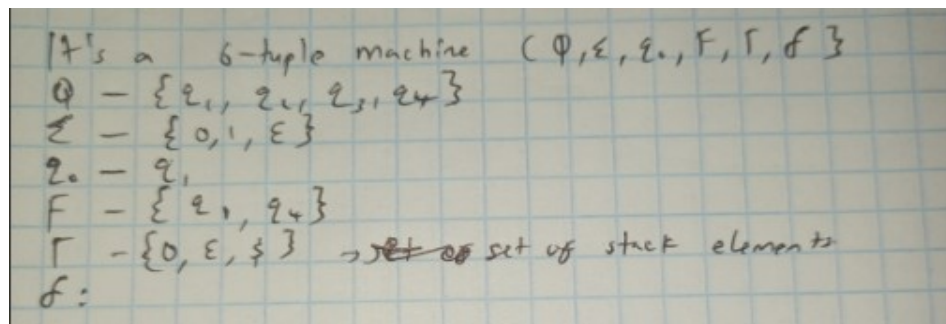 It's a 6-tuple machine (Q, Σ, q₀, F, Γ, δ}
Q – {q₁, q₂, q₃, q₄}
Σ – {0, 1, ε}
q₀ – q₁
F – {q₁, q₄}
Γ – {0, ε, $} → set of set of stack elements
δ: